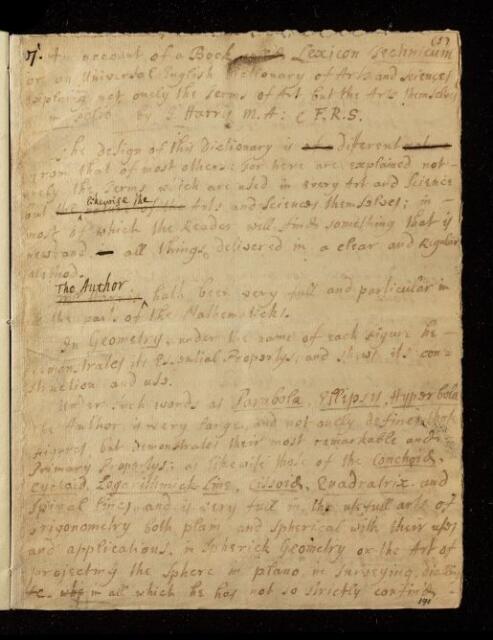 (5)
7. An account of a Book Lexicon Technicum
or an Universal English Dictionary of Arts and Sciences
explaing not onely the terms of Art but the Arts themselves
in Folio by J Harris M.A: & F.R.S.
The design of this Dictionary is different
from that of most others: For here are explained not
onely the Terms which are used in every Art and Science
but likewise the Arts and Sciences themselves; in
most of which the Reader will find something that is
new and all things delivered in a clear and Regular
Method.
The Author hath been very full and particular in
the parts of the Mathematicks.
In Geometry, under the name of each Figure he
demonstrates its Essential Propertys, and shews its con=
struction and use.
Under such words as Parabola, Ellipsis, Hyperbola
the Author is very large, and not onely defines those
figures, but demonstrates their most remarkable and
Primary Propertys: as likewise those of the Conchoid,
Cycloid, Logarithmick line, Cissoid, Quadratrix and
Spiral lines, and is very full in the usefull arts of
Trigonometry both plain and spherical with their uses
and applications, in Spherick Geometry or the Art of
projecting the Sphere in plano, in Surveying, dialling
&c. in all which he has not so strictly confin'd
191